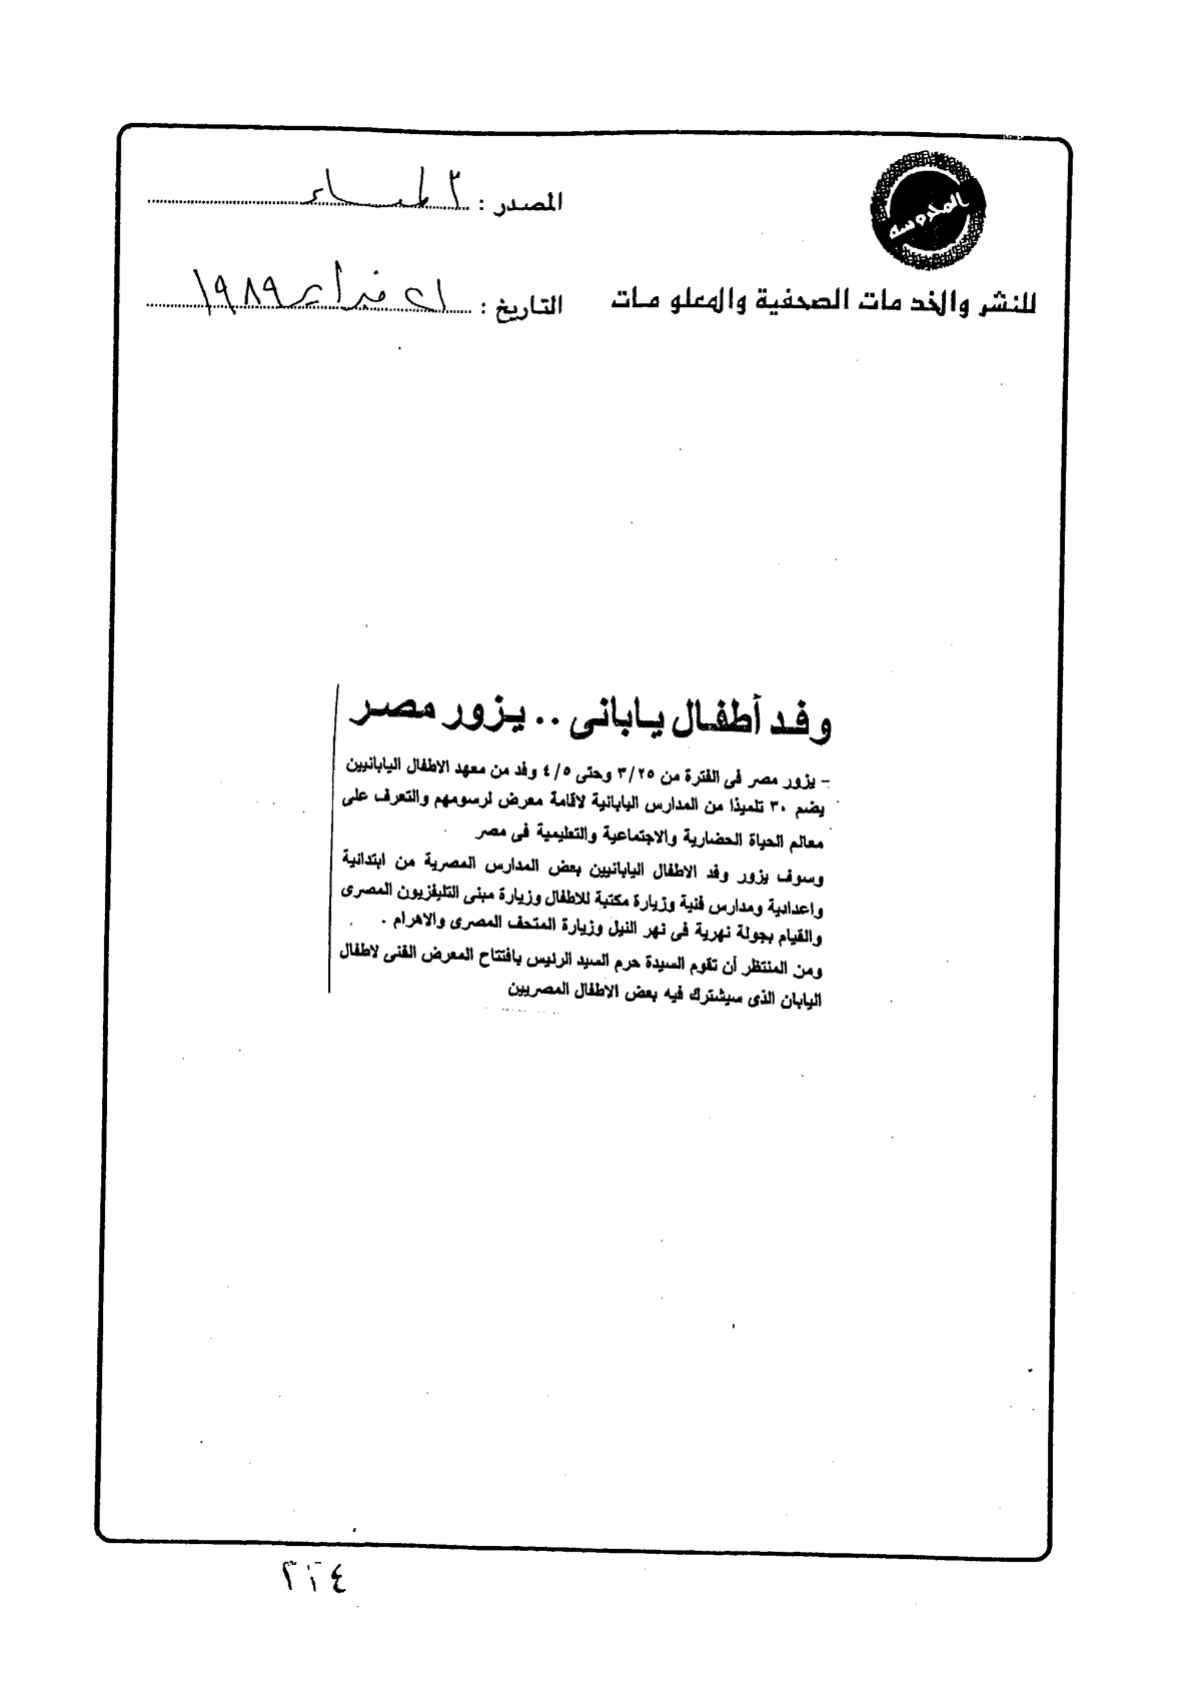 المحروسه
للنشر والخدمات الصحفية والمعلومات
المصدر :
التاريخ : ٢١ فبراير ١٩٨٩
وفد أطفال يابانى .. يزور مصر
- يزور مصر فى الفترة من ٣/٢٥ وحتى ٤/٥ وفد من معهد الاطفال اليابانيين
يضم ٣٠ تلميذا من المدارس اليابانية لاقامة معرض لرسومهم والتعرف على
معالم الحياة الحضارية والاجتماعية والتعليمية فى مصر
وسوف يزور وفد الاطفال اليابانيين بعض المدارس المصرية من ابتدائية
واعدادية ومدارس فنية وزيارة مكتبة للاطفال وزيارة مبنى التليفزيون المصرى
والقيام بجولة نهرية فى نهر النيل وزيارة المتحف المصرى والاهرام .
ومن المنتظر أن تقوم السيدة حرم السيد الرئيس بافتتاح المعرض الفنى لاطفال
اليابان الذى سيشترك فيه بعض الاطفال المصريين